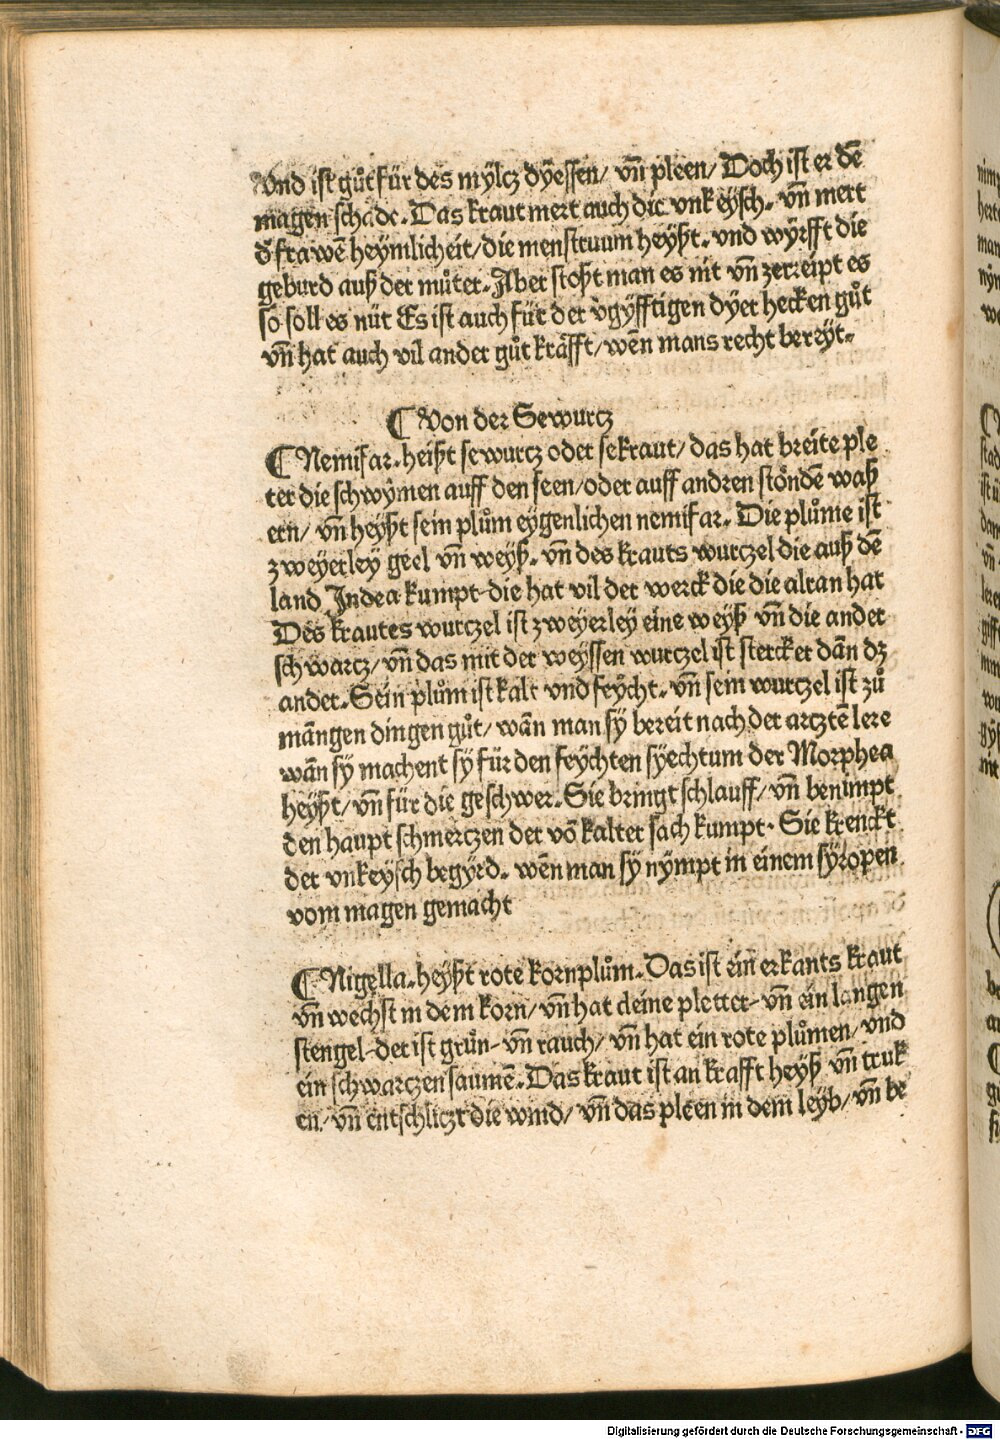 Vnd ist gůt für des mÿltz dÿessen/ vn̄ pleen/ Doch ist er dē
magen schade. Das kraut mert auch die vnkeÿsch. vn̄ mert
d̕ frawē heÿmlicheit/ die menstruum heÿßt. vnd wÿrfft die
geburd auß der můter. Aber stoßt man es nit vn̄ zerreipt es
so soll es nüt Es ist auch für der v̕gÿfftigen dÿer hecken gůt
vn̄ hat auch vil ander gůt kräfft/ wēn mans recht bereÿt.
¶ Von der Sewurtz
¶ Nemifar. heißt sewurtz oder sekraut/ das hat breite ple
ter die schwÿmen auff den seen/ oder auff andren stöndē waß
ern/ vn̄ heÿßt sein plům eÿgenlichen nemifar. Die plůme ist
zweÿerleÿ geel vn̄ weÿß. vn̄ des krauts wurtzel die auß dē
land Indea kumpt die hat vil der werck die die alran hat
Des krautes wurtzel ist zweÿerley eine weÿß vn̄ die ander
schwartz/ vn̄ das mit der weÿssen wurtzel ist stercker dān dz
ander. Sein plům ist kalt vnd feÿcht. vn̄ sein wurtzel ist zů
māngen dingen gůt/ wān man sÿ bereit nach der artztē lere
wān sÿ machent sÿ für den feÿchten sÿechtum der Morphea
heÿßt/ vn̄ für die geschwer. Sie bringt schlauff/ vn̄ benimpt
den haupt schmertzen der vō kalter sach kumpt. Sie krenckt
der vnkeÿsch begÿrd. wēn man sÿ nÿmpt in einem sÿropen
vom magen gemacht
¶ Nigella. heÿßt rote kornplům. Das ist ein erkants kraut
vn̄ wechst in dem korn/ vn̄ hat cleine pletter vn̄ ein langen
stengel der ist grůn vn̄ rauch/ vn̄ hat ein rote plůmen/ vnd
ein schwartzen saumē. Das kraut ist an krafft heÿß vn̄ truk
en/ vn̄ entschliczt die wind/ vn̄ das pleen in dem leÿb/ vn̄ be
Digitalisierung gefördert durch die Deutsche Forschungsgemeinschaft - DFG